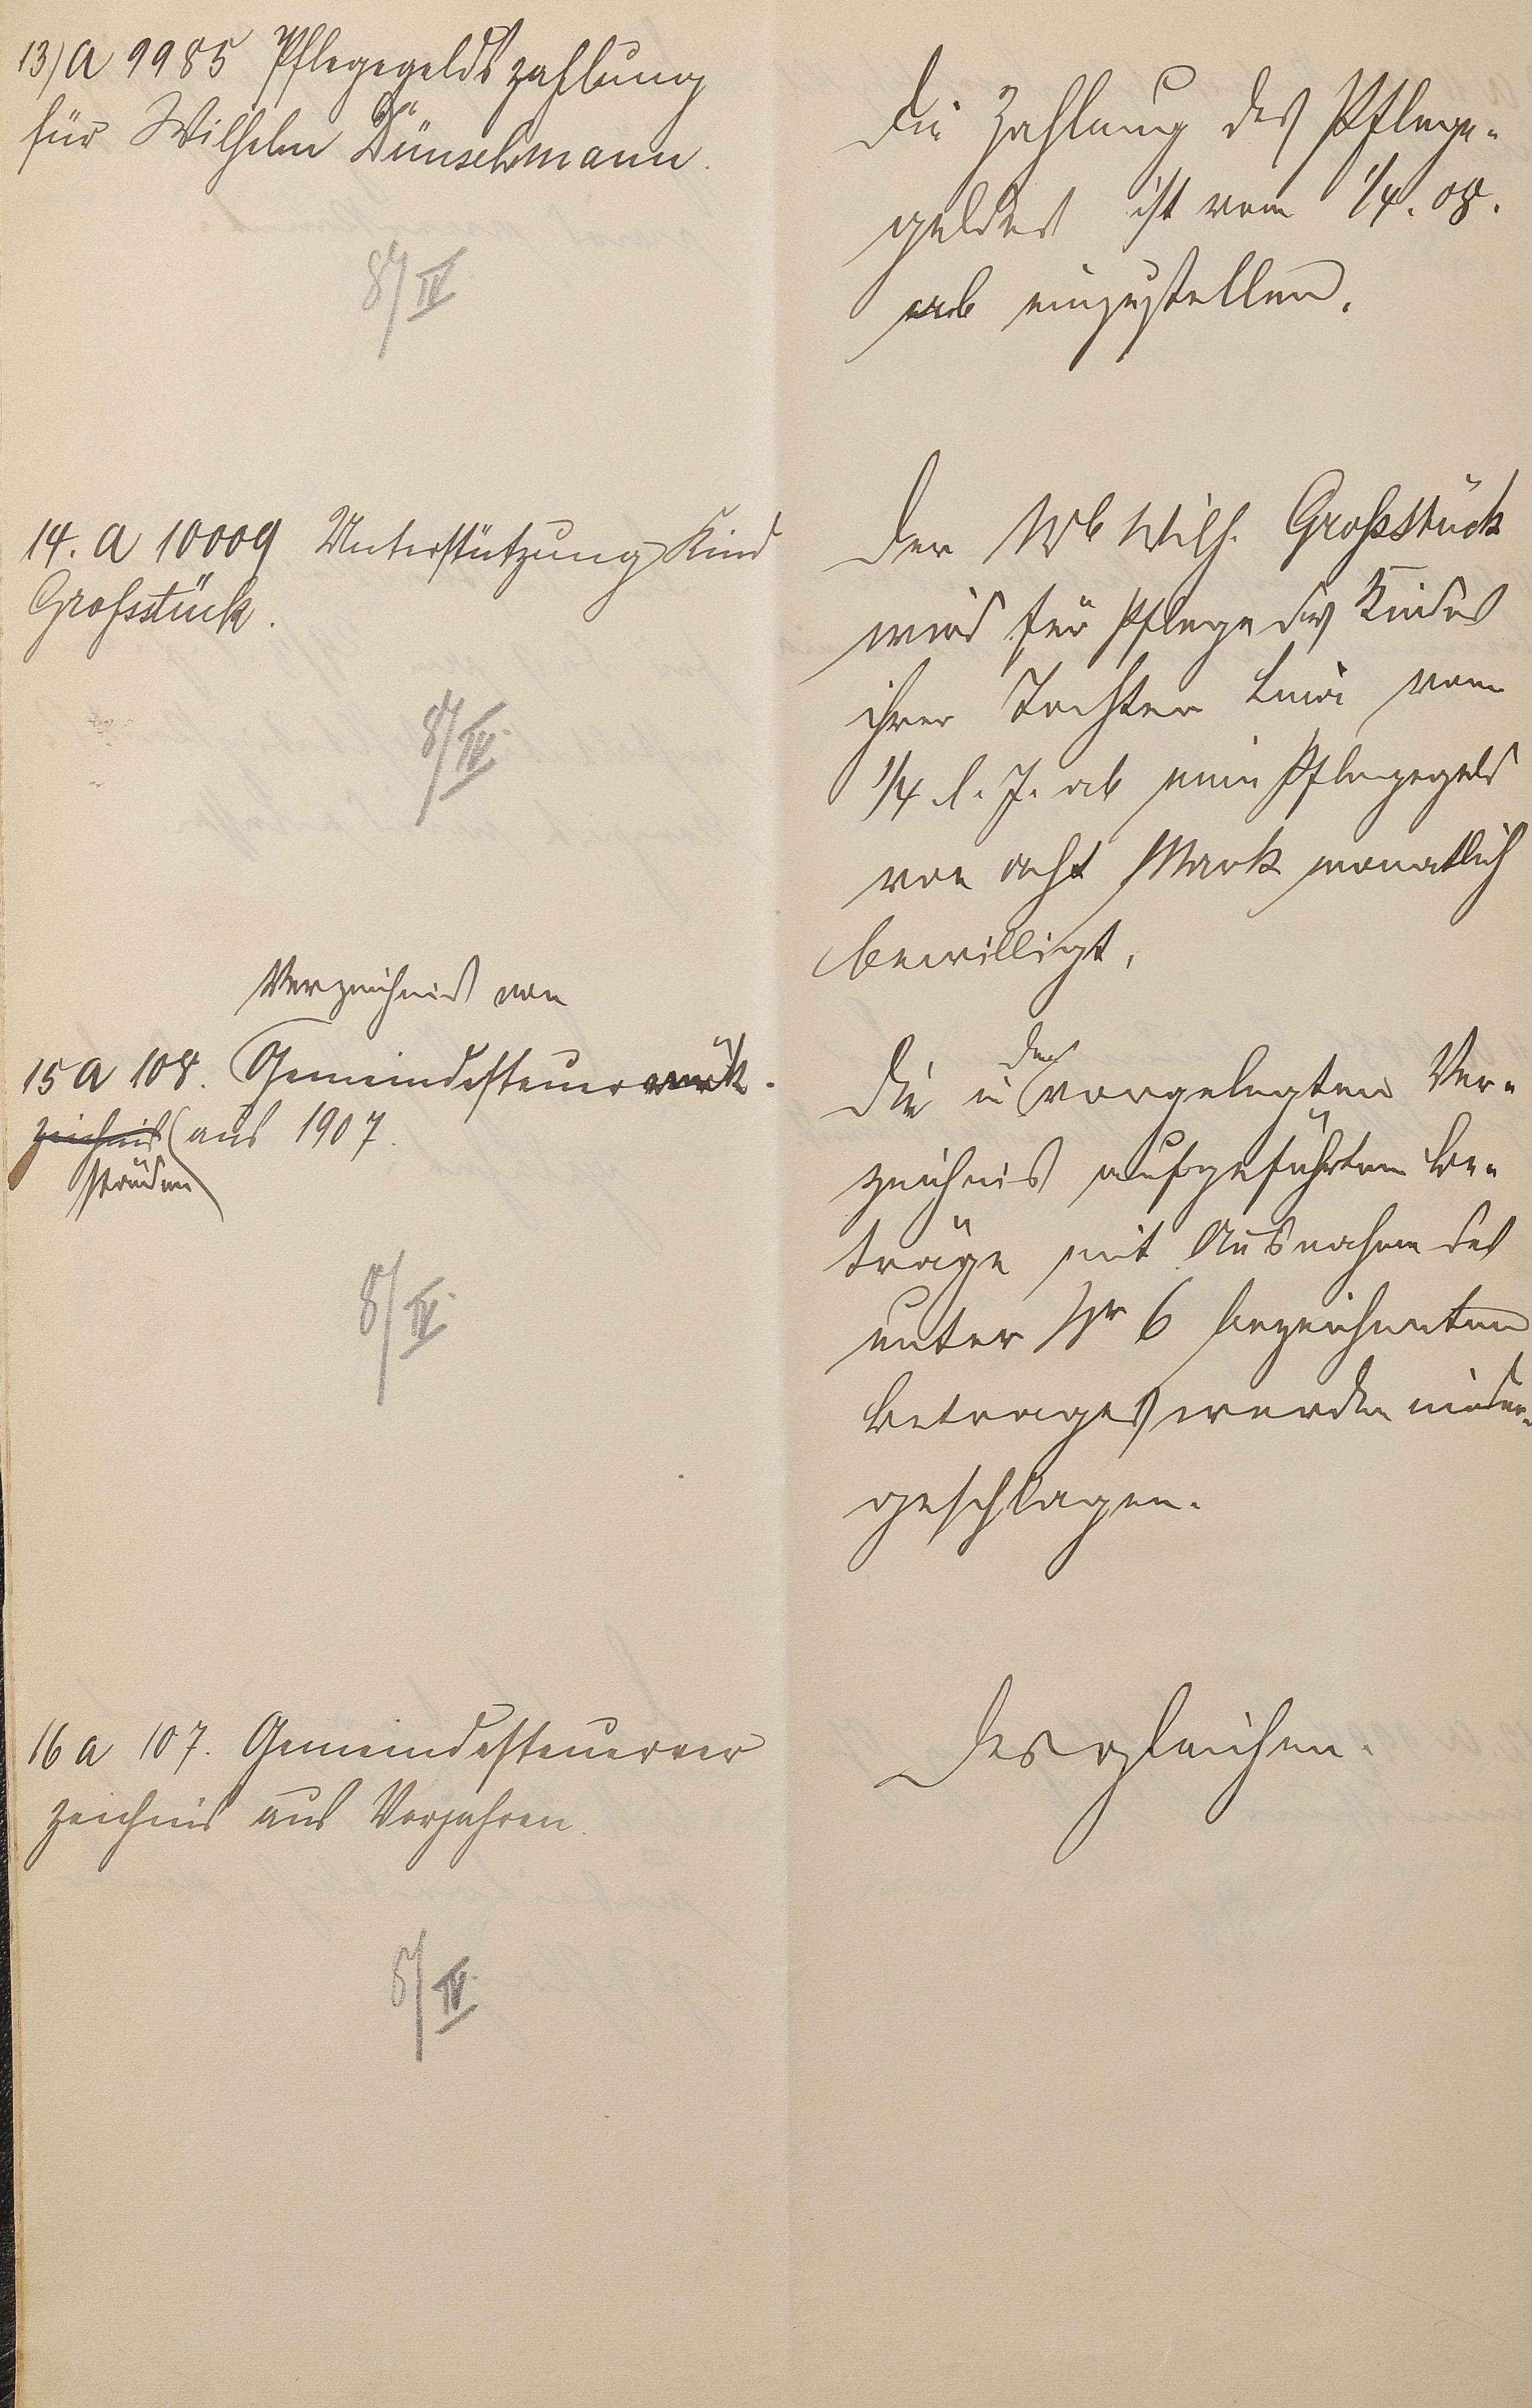 13) A 9985 Pflegegeldszahlung
für Wilhelm Dünschmann.
8/IV
Die Zahlung des Pflege-
geldes ist vom 1/4. 08.
ab einzustellen.
14. A 10009 Unterstützung Kind
Großstück.
8/IV.
Der Wb Wilh. Großstück
wird für Pflege des Kindes
ihrer Tochter vom
1/4 l. J. ab ein Pflegegeld
von acht Mark monatlich
bewilligt.
Verzeichnis von
15 A 108. Gemeindesteuerrück-
zeichnis aus 1907.
ständen
8/IV.
Die in dem vorgelegten Ver-
zeichnis aufgeführten Be-
träge mit Ausnahme des
unter Nr 6 bezeichneten
Betrages werden nieder-
geschlagen.
16 A 107. Gemeindesteuerver
zeichnis aus Vorjahren.
8/IV.
Desgleichen.